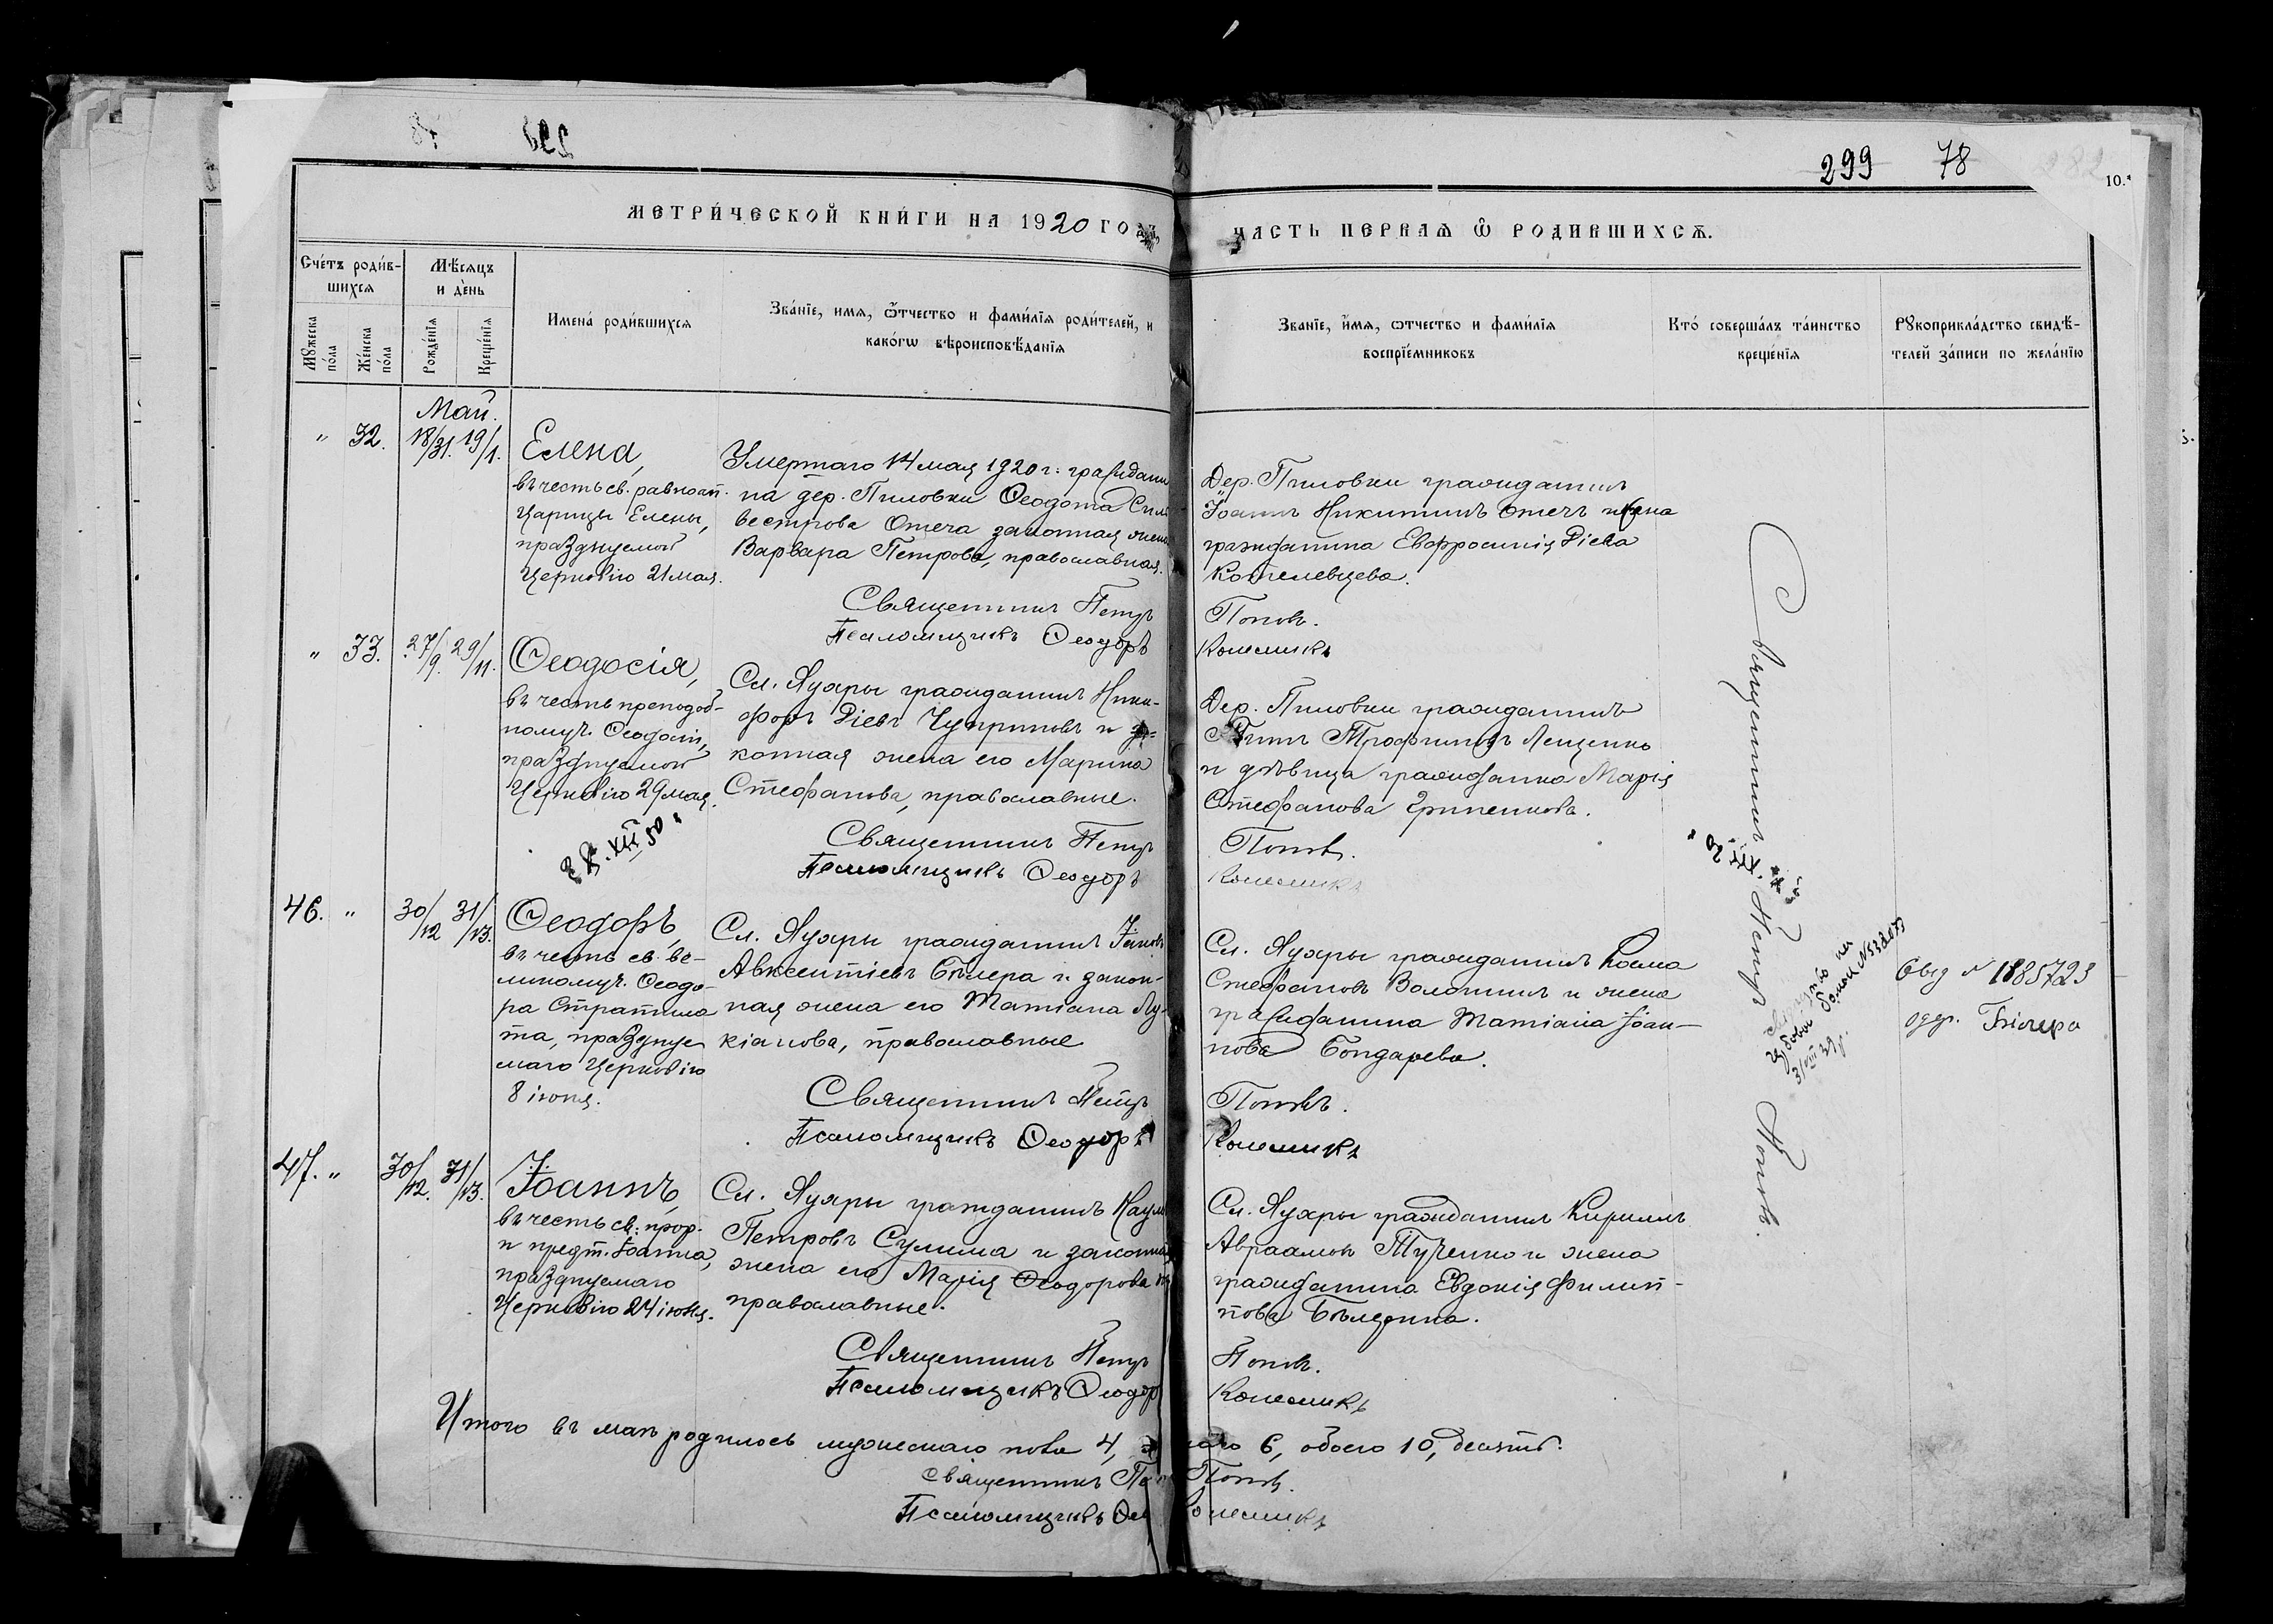 299 78
10.
МЕТРИ́ЧЕСКОЙ КНИ́ГИ НА 1920 ГОДЪ,
ЧАСТЬ ПЕРВАѦ Ѿ РОДИВШИХСѦ.
Сче́тъ роди́в-
шихсѧ
Мѣ́сѧцъ
и де́нь
Мꙋжеска по́ла
Же́нска по́ла
Рожде́нїѧ
Креще́нїѧ
Имена́ роди́вшихсѧ
Зва́нїе, имѧ, ѻ҆́тчество и фами́лїѧ роди́телей, и
како́гѡ вѣроисповѣ́данїѧ
Зва́нїе, и҆́мѧ, ѻтчество и фами́лїѧ
воспрїе́мниковъ
Кто́ соверша́лъ та́инство
креще́нїѧ
Рꙋкоприкла́дство свидѣ́-
телей за́писи по жела́нїю
Май.
" 32. 18/31. 19/1.
Елена,
въ честь св. равноап.
Царицы Елены,
празднуемой
Церковію 21 мая.
Умершаго 14 мая 1920 г. граждани
на дер. Пиловки Ѳеодота Силь
вестрова Отеча законная жена
Варвара Петрова, православная.
Священникъ Петръ
Псаломщикъ Ѳеодоръ
Дер. Пиловки гражданинъ
Іоаннъ Никитинъ Отечъ и жена
гражданина Евфросинія
Котелевцева.
Поповъ.
Колесникъ
" 33. 27/9. 29/11.
Ѳеодосія,
въ честь преподоб-
номуч. Ѳеодосіи,
празднуемой
Церковію 29 мая.
Сл. Ауяры гражданинъ Ники-
форъ Чуприновъ и за-
конная жена его Марина
Стефанова, православные.
Священникъ Петръ
Псаломщикъ Ѳеодоръ
Дер. Пиловки гражданинъ
Трофимовъ Лещенко
и дѣвица гражданка Марія
Стефанова Гриненкова.
Поповъ.
Колесникъ
46. " 30/12 31/13.
Ѳеодоръ,
въ честь св. ве-
ликомуч. Ѳеодо-
ра Стратила
та, празднуе
маго Церковію
8 іюня.
Сл. Ауяры гражданинъ
Авксентіевъ Бѣлера и закон-
ная жена его Татіана Лу-
кіанова, православные
Священникъ Петръ
Псаломщикъ Ѳеодоръ
Сл. Ауяры гражданинъ Косма
Стефановъ Волошинъ и жена
гражданина Татіана Іоан-
нова Бондарева.
Поповъ.
Колесникъ
Священникъ Петръ Поповъ.
47. " 30/12. 31/13.
Іоаннъ,
въ честь св. прор.
и предт. Іоанна,
празднуемаго
Церковію 24 іюня.
Сл. Ауяры гражданинъ Наумъ
Петровъ Сулима и законная
жена его Марія Ѳеодорова
православные.
Священникъ Петръ
Псаломщикъ Ѳеодоръ
Сл. Ауяры гражданинъ Кириллъ
Авраамовъ Тученко и жена
гражданина Евдокія Филип-
пова
Поповъ.
Колесникъ
Итого въ маѣ родилось мужескаго пола 4, 6, обоего 10, десять.
Священникъ Поповъ.
Псаломщикъ Колесникъ